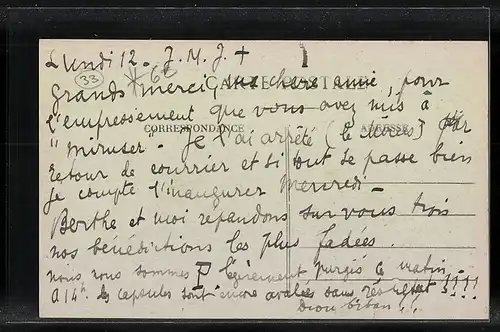 Lundi 12 - J. M. J. +
33
Grands merci, ma chère amie, pour
CARTE POSTALE
l'empressement que vous avez mis à
CORRESPONDANCE
ADRESSE
" - Je l'ai arrêté ( le ) par
retour de courrier et si tout se passe bien
je compte l'inaugurer Mercredi -
Berthe et moi répandons sur vous trois
nos bénédictions les plus fadées.
nous nous sommes légèrement purgés ce matin
à 14h. les capsules sont encore avalées sans !!!!